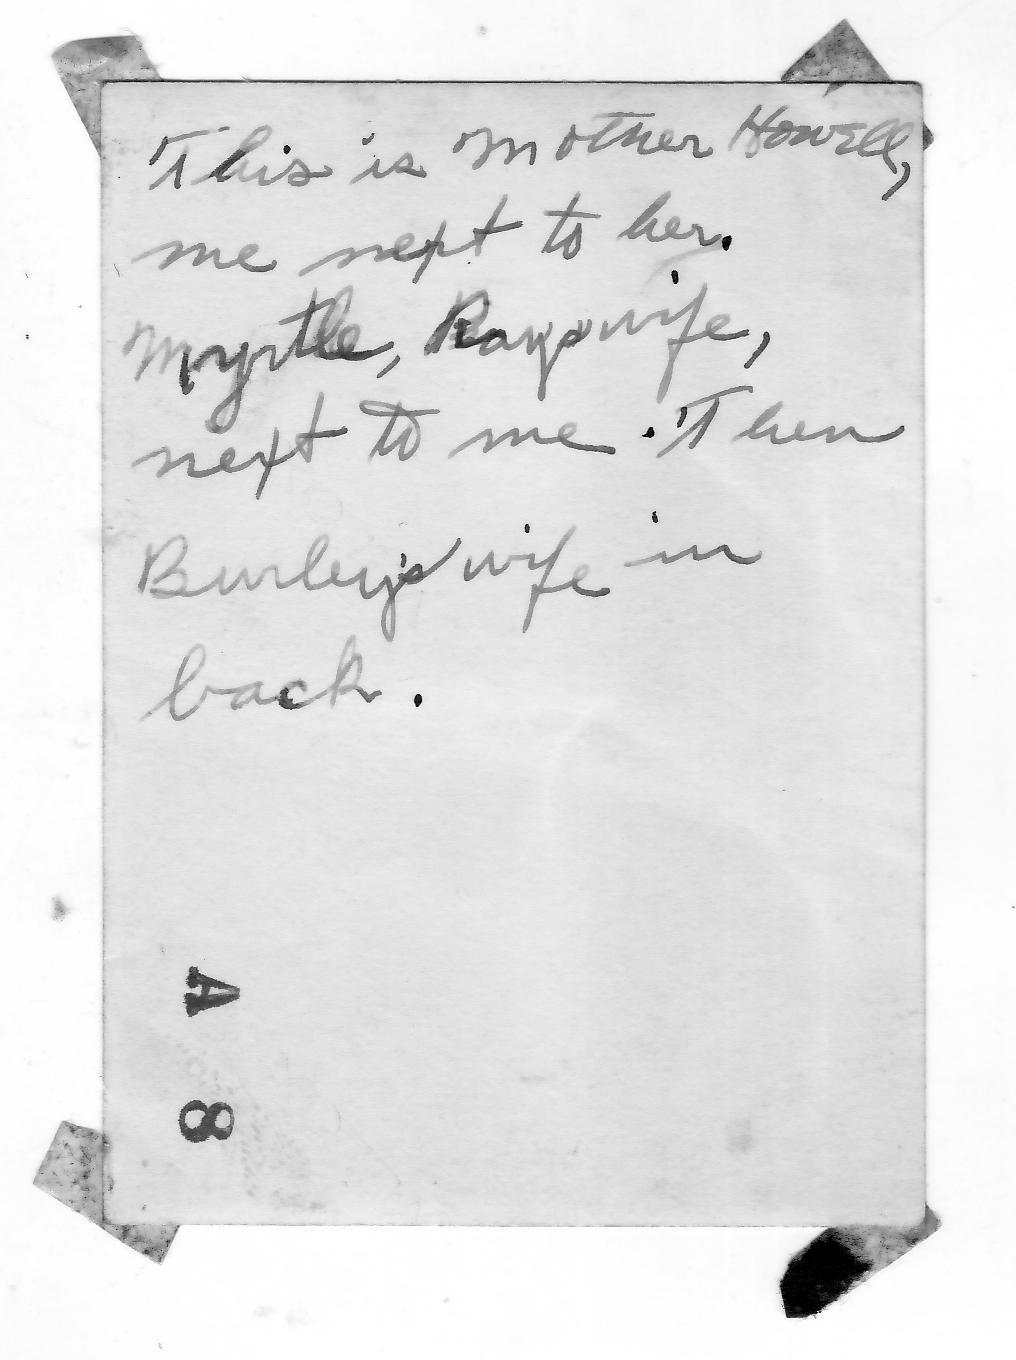 This is Mother Howell,
me next to her.
Myrtle, Rays wife,
next to me. Then
Burley's wife in
back.
A 8